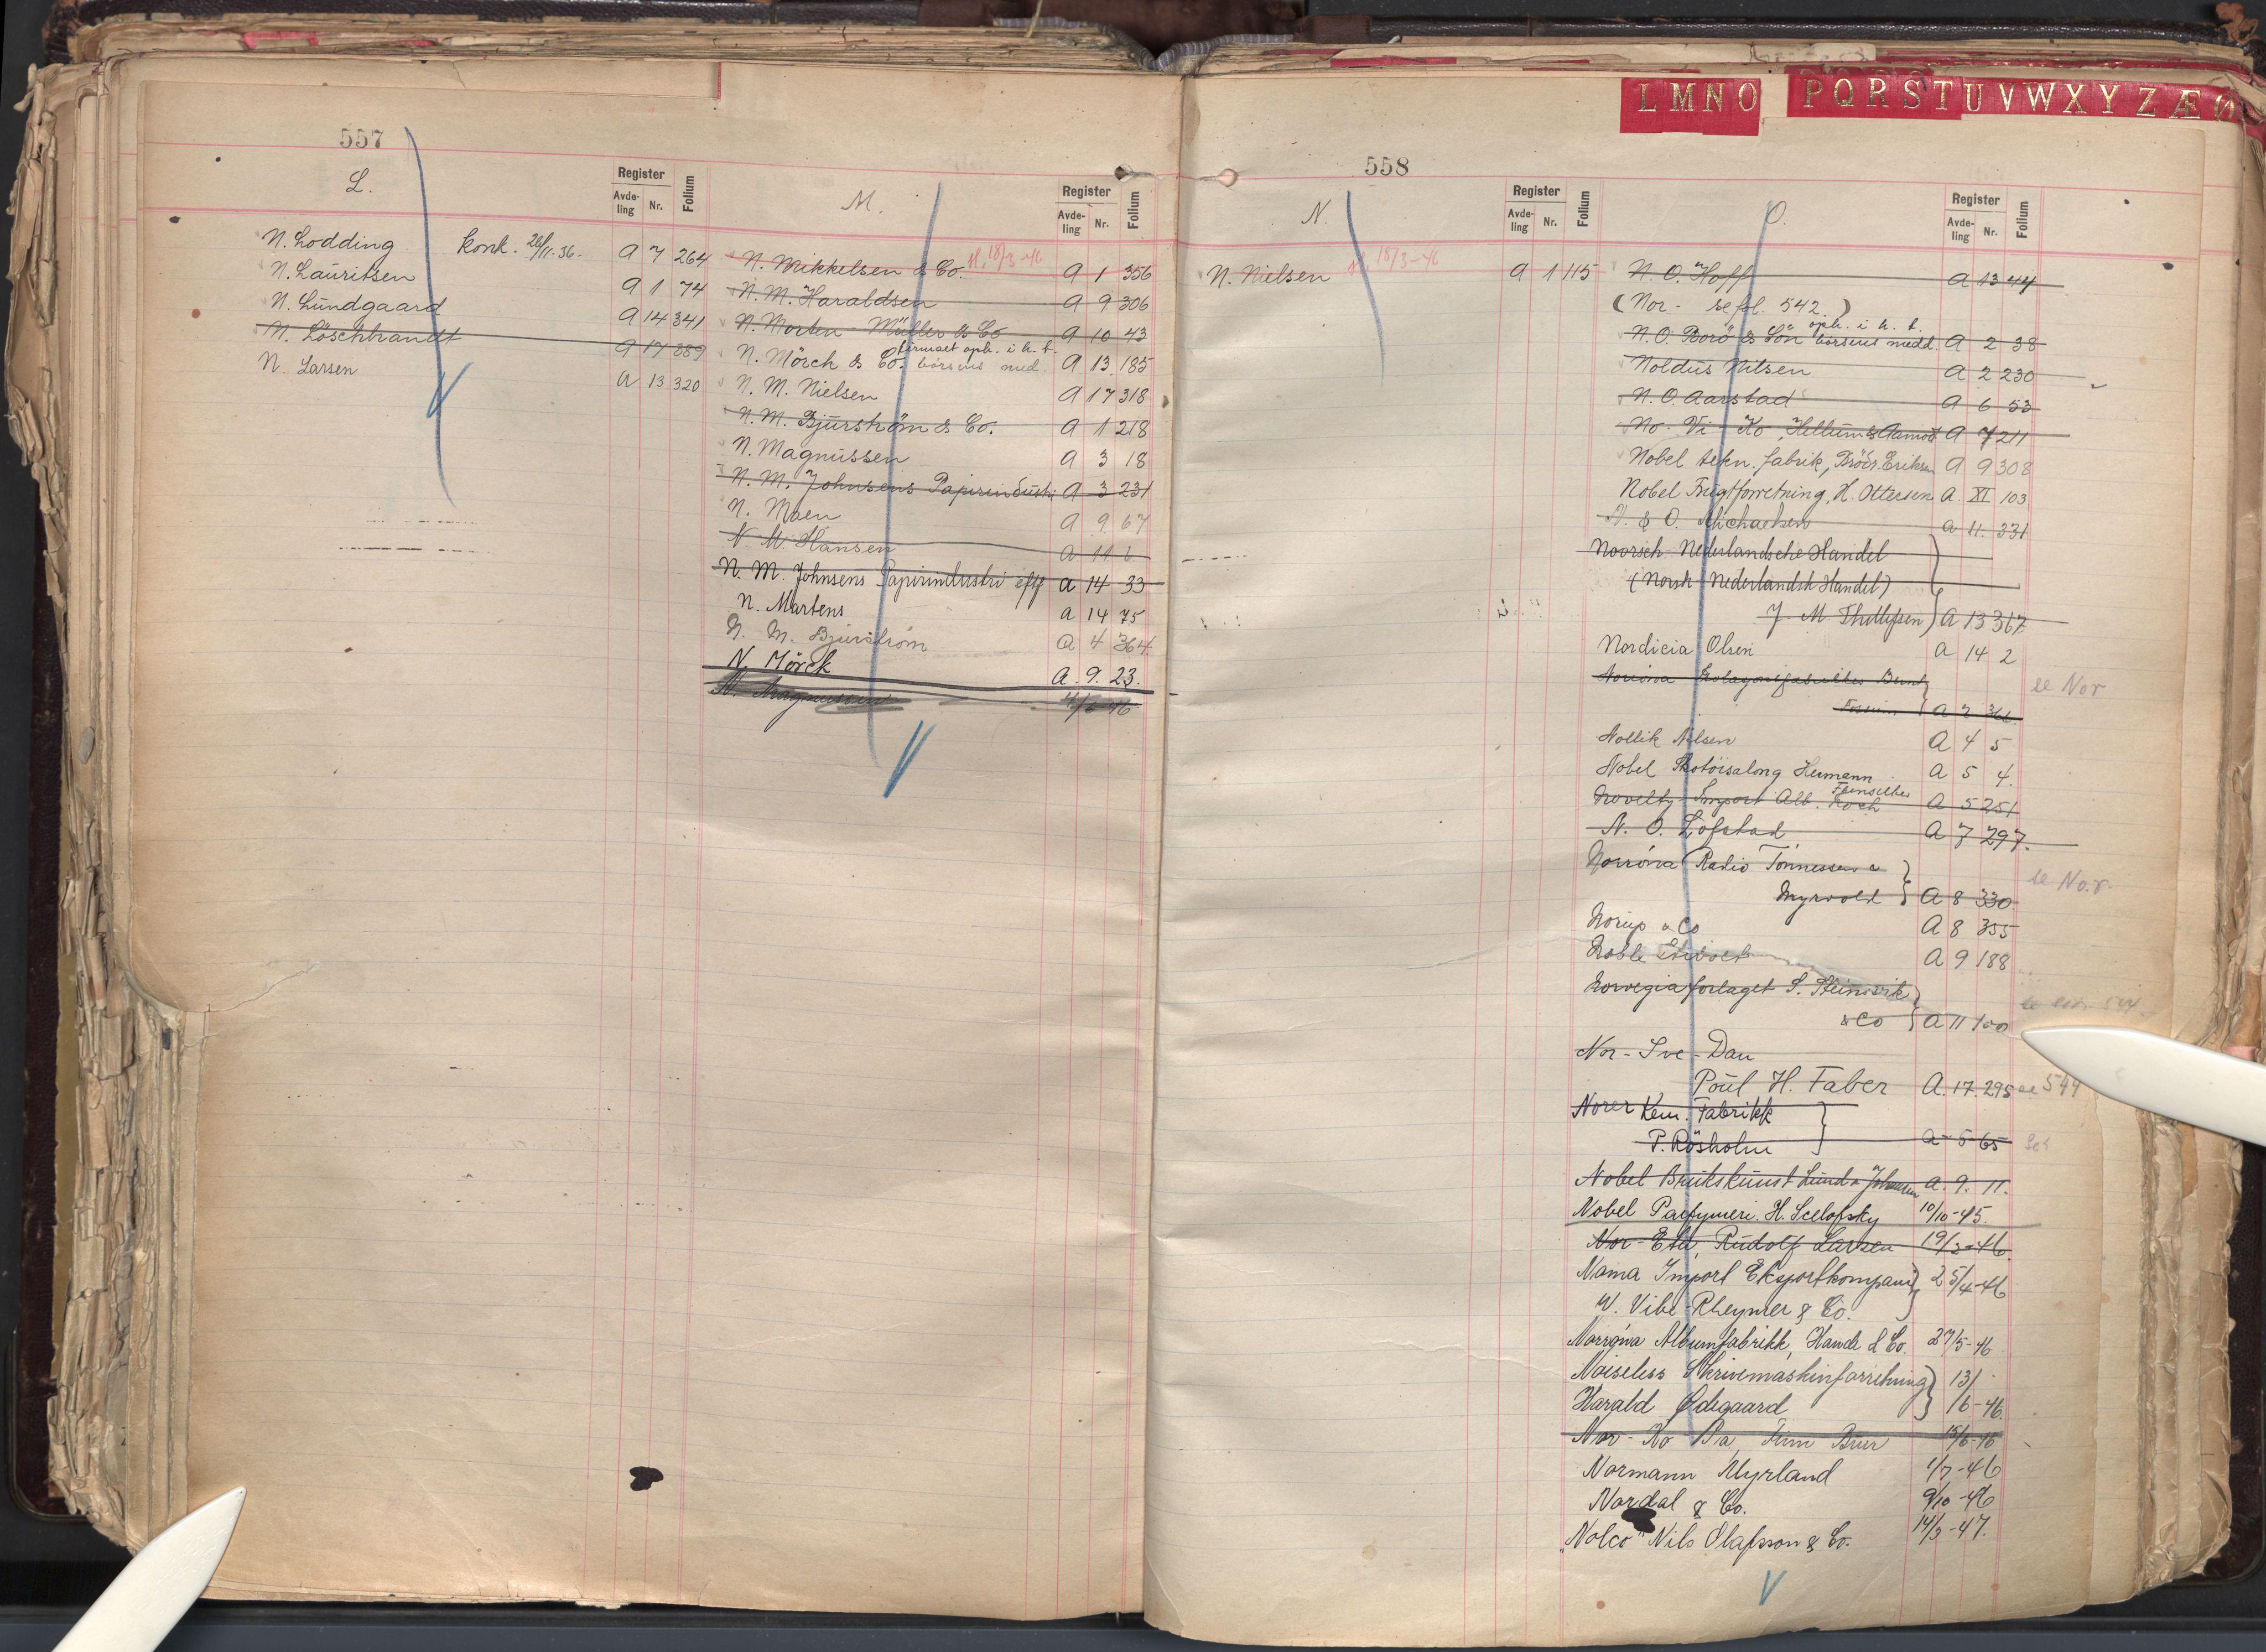 557
L.
Register
Avde-
ling
Nr.
Folium
N. Lodding konk. 26/11-36. A 7 264
N. Lauritsen A 1 74
N. Lundgaard A 14 341
N. Löschbrandt A 17 389
N. Larsen A 13 320
M.
Register
Avde-
ling
Nr.
Folium
N. Mikkelsen & Co. 18/3-46 A 1 356
N. M. Haraldsen A 9 306
N. Morten Müller & Co A 10 43
firmaet oph. i h. t.
N. Mörch & Co. börsens med. A 13 185
N. M. Nielsen A 17 318
N. M. Bjurström & Co. A 1 218
N. Magnussen A 3 18
N. M. Johnsens Papirindustri A 3 231
N. Moen A 9 67
N. M. Hansen A 11 6
N. M. Johnsens Papirindustri eftf A 14 33
N. Martens A 14 75
N. M. Bjurström A 4 364
N. Mörck A. 9. 23.
N. Magnussen 4/6-46
LMNO PQRSTUVWXYZÆØ
558
N.
Register
Avde-
ling
Nr.
Folium
N. Nielsen 18/3-46 A 1 115
O.
Register
Avde-
ling
Nr.
Folium
N. O. Hoff A 13 44
(Nor - se fol. 542.)
oph. i h. t.
N. O. Borö & Sön börsens medd. A 2 38
Noldus Nilsen A 2 230
N. O. Aarstad A 6 53
No-Vi-Ko, Hellum & Aamot A 7 211
Nobel tekn. fabrik, Brödr. Eriksen A 9 308
Nobel Frugtforretning, H. Ottersen A XI 103
N. & O. Michaelsen A 11. 331
Noorsch Nederlandsche Handel
(Norsk Nederlandsk Handel)
J. M. Thellefsen) A 13 367
Nordicia Olsen A 14 2
Norröna Bunt
A 2 366 se Nor
Nollik Nilsen A 4 5
Nobel Skotöisalong Hermann A 5 4.
Feinsilber
Novelty Import Alb. Koch A 5 251
N. O. Lofstad A 7 297.
Norröna Radio Tönnessen &
Myrvold A 8 330 se Nor.
Norup & Co A 8 355
Noble A 9 188
Norvegiaforlaget S. Steinsvik
& Co A 11 100
Nor-Sve-Dan
Poul H. Faber A. 17. 295 se 544
Norer Kem. Fabrikk
P. Rösholm A - 5 65
Nobel Brukskunst Lund & Johansen A. 9. 11.
Nobel Parfymeri. H. Scelofsky 10/10-45.
Nor-Eta, Rudolf Larsen 19/3-46
Nama Import Eksportkompani 25/4-46
W. Vibe-Rheymer & Co.
Norröna Albumfabrikk, Hande & Co. 27/5-46
Noiseless Skrivemaskinforretning 13/
Harald Ødegaard /6-46.
Nor-Ko Pa, Finn Brur 15/6-46
Normann Myrland 1/7-46
Nordal & Co. 9/10-46
"Nolco" Nils Olafsson & Co. 14/3-47.